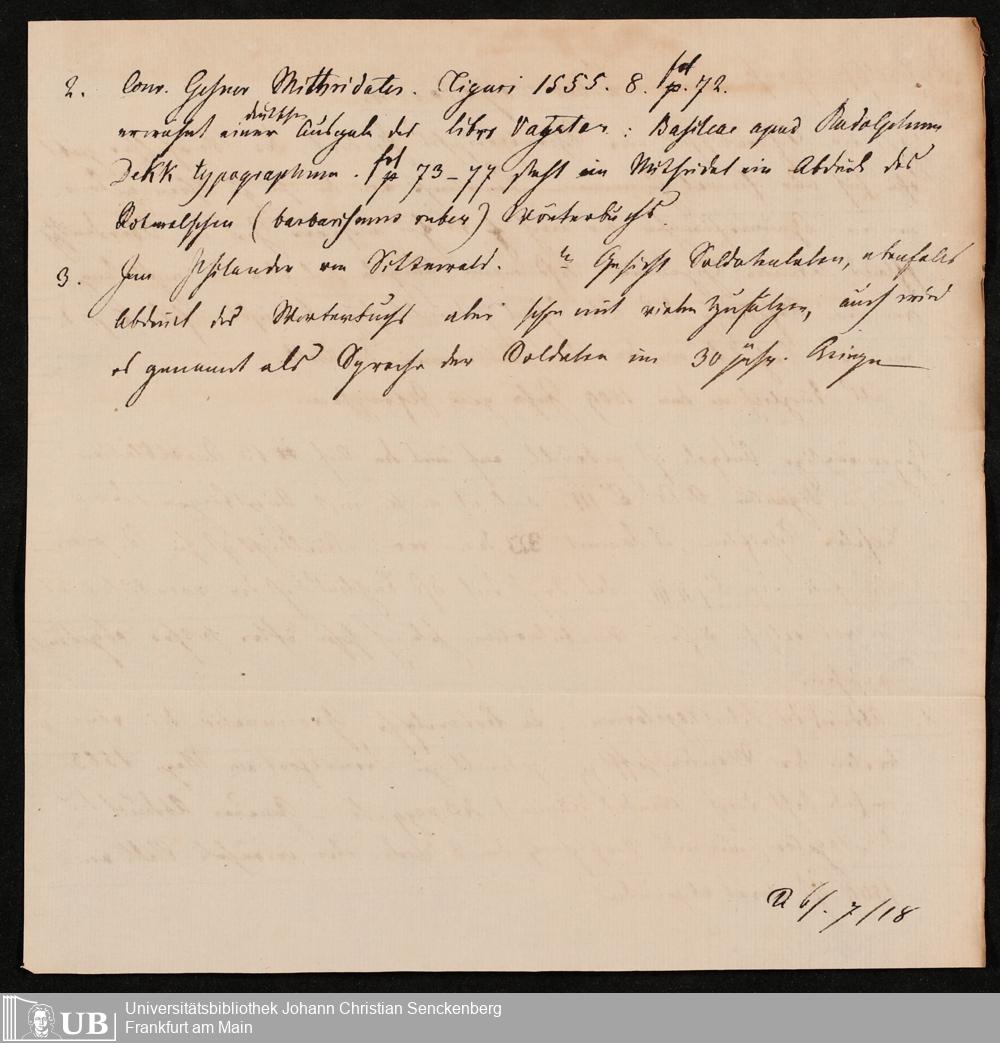 2. Conr. Gesner Mithridates. Tiguri 1555. 8. fol p. 72.
erwähnt einer deutschen Ausgabe des libro Vagator: Basileae apud Rudolphum
Dekk typographum. fol p 73–77 steht im Mithridat ein Abdruck des
Rotwelschen (barbarismus ruber) Wörterbuchs.
3. Im Philander von Sittewald. Gesicht Soldatenleben, ebenfalls
Abdruck des Wörterbuchs aber sehr mit vielen Zusätzen, auch wird
es genannt als Sprache der Soldaten im 30 jähr. Kriege
7/18
UB
Universitätsbibliothek Johann Christian Senckenberg
Frankfurt am Main